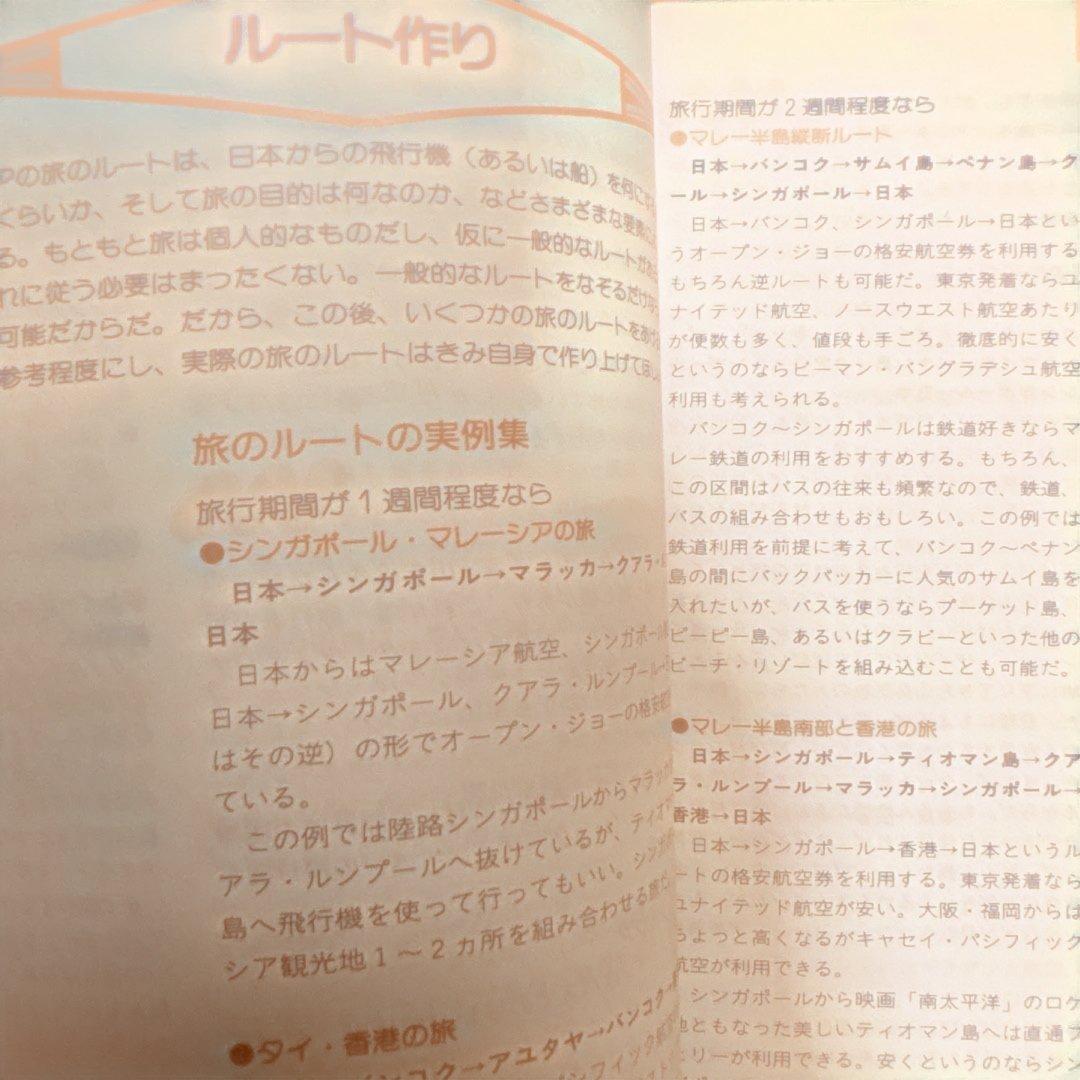 ルート作り
の旅のルートは、日本からの飛行機（あるいは船）を何に
くらいか、そして旅の目的は何なのか、などさまざまな要素
る。もともと旅は個人的なものだし、仮に一般的なルートが
れに従う必要はまったくない。一般的なルートをなぞるだけ
可能だからだ。だから、この後、いくつかの旅のルートをあ
参考程度にし、実際の旅のルートはきみ自身で作り上げてほ
旅のルートの実例集
旅行期間が1週間程度なら
●シンガポール・マレーシアの旅
日本→シンガポール→マラッカ→クアラ・
日本
日本からはマレーシア航空、シンガポール
日本→シンガポール、クアラ・ルンプール
はその逆）の形でオープン・ジョーの格安
ている。
この例では陸路シンガポールからマラッカ
アラ・ルンプールへ抜けているが、ティオ
島へ飛行機を使って行ってもいい。シンガ
シア観光地1～2ヵ所を組み合わせる旅だ
●タイ・香港の旅
→アユタヤ→バンコク→
旅行期間が2週間程度なら
●マレー半島縦断ルート
日本→バンコク→サムイ島→ペナン島→ク
ール→シンガポール→日本
日本→バンコク、シンガポール→日本とい
うオープン・ジョーの格安航空券を利用する
もちろん逆ルートも可能だ。東京発着ならユ
ナイテッド航空、ノースウエスト航空あたり
が便数も多く、値段も手ごろ。徹底的に安く
というのならビーマン・バングラデシュ航空
利用も考えられる。
バンコク～シンガポールは鉄道好きならマ
レー鉄道の利用をおすすめする。もちろん、
この区間はバスの往来も頻繁なので、鉄道、
バスの組み合わせもおもしろい。この例では
鉄道利用を前提に考えて、バンコク～ペナン
島の間にバックパッカーに人気のサムイ島を
入れたいが、バスを使うならプーケット島、
ピーピー島、あるいはクラビーといった他の
ビーチ・リゾートを組み込むことも可能だ。
●マレー半島南部と香港の旅
日本→シンガポール→ティオマン島→クア
ラ・ルンプール→マラッカ→シンガポール→
香港→日本
日本→シンガポール→香港→日本というル
ートの格安航空券を利用する。東京発着なら
ユナイテッド航空が安い。大阪・福岡からは
ちょっと高くなるがキャセイ・パシフィック
航空が利用できる。
シンガポールから映画「南太平洋」のロケ
地ともなった美しいティオマン島へは直通フ
ェリーが利用できる。安くというのならシン